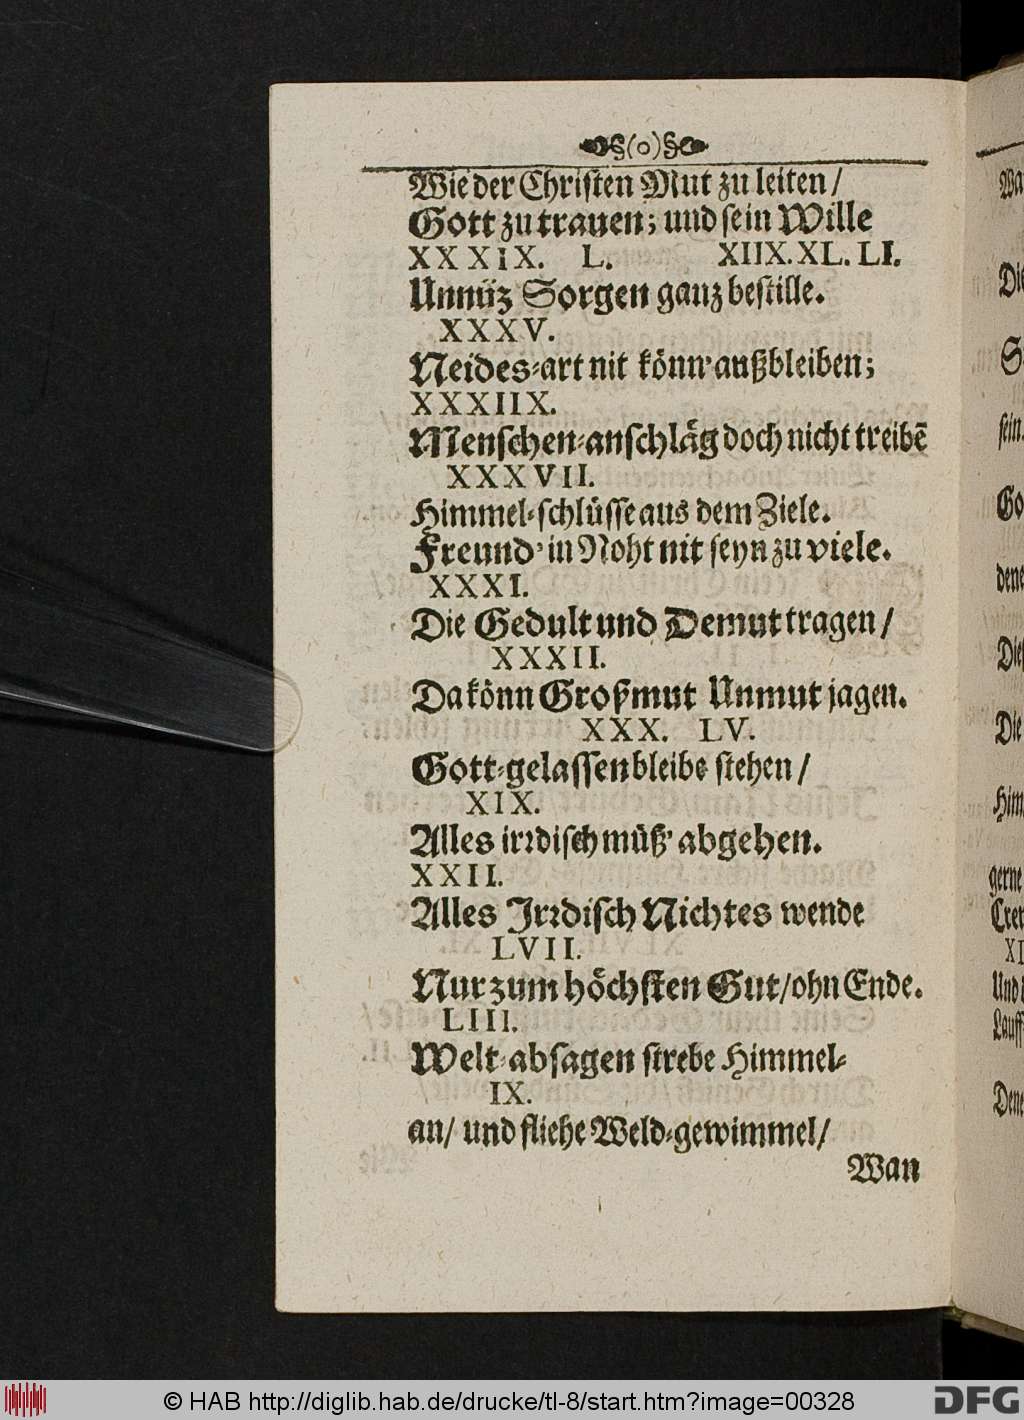 (o)
Wie der Christen Mut zu leiten /
Gott zu trauen; und sein Wille
XXXiX. L. XIIX. XL. LI.
Unnüz Sorgen ganz bestille.
XXXV.
Neides-art nit könn' außbleiben;
XXXIIX.
Menschen-anschläg doch nicht treibē
XXXVII.
Himmel-schlüsse aus dem Ziele.
Freund' in Noht nit seyn zu viele.
XXXI.
Die Gedult und Demut tragen /
XXXII.
Da könn Großmut Unmut jagen.
XXX. LV.
Gott-gelassen bleibe stehen /
XIX.
Alles irrdisch müß' abgehen.
XXII.
Alles Irrdisch Nichtes wende
LVII.
Nur zum höchsten Gut / ohn Ende.
LIII.
Welt-absagen strebe Himmel-
IX.
an / und fliehe Weld-gewimmel /
Wan
Die
sein.
Die
gerne
XI
© HAB http://diglib.hab.de/drucke/tl-8/start.htm?image=00328
DFG